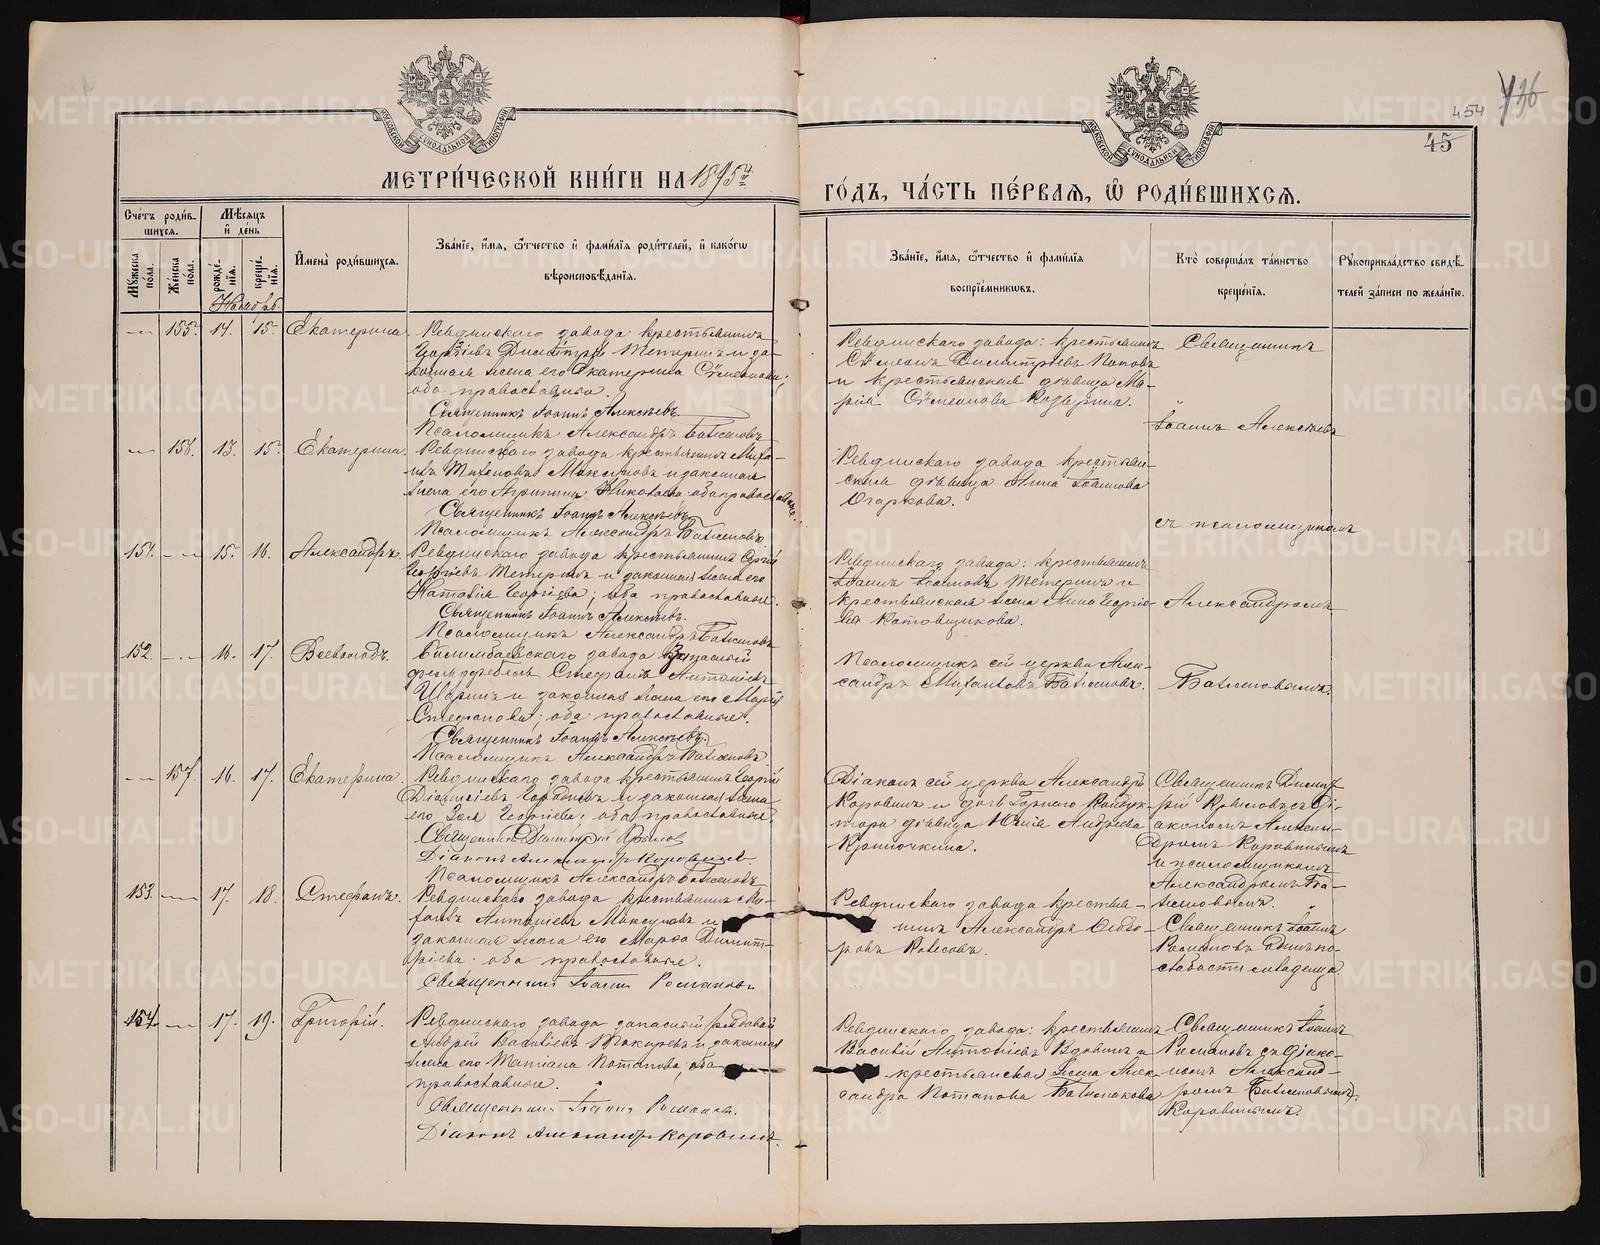 METRIKI.GASO-URAL.RU
736
454
45
МОСКОВСКОЙ СѴНОДАЛЬНОЙ ТИПОГРАФІИ
МОСКОВСКОЙ СѴНОДАЛЬНОЙ ТИПОГРАФІИ
МЕТРИ́ЧЕСКОЙ КНИ́ГИ НА 1895й
ГО́ДЪ, ЧА́СТЬ ПЕ́РВАЯ, Ѡ РОДИ́ВШИХСЯ.
Сче́тъ роди́вшихся.
Мꙋ́жеска по́ла.
Же́нска по́ла.
Мѣ́сяцъ и҆ де́нь
рожде́нїя.
креще́нїя.
И҆мена̀ роди́вшихся.
Зва́нїе, и҆́мя, ѻ҆́тчество и҆ фами́лїя роди́телей, и҆ како́гѡ
вѣроисповѣ́данїя.
Зва́нїе, и҆́мя, ѻ҆́тчество и҆ фами́лїя
воспрїе́мникѡвъ.
Кто̀ соверша́лъ та́инство
креще́нїя.
Рꙋкоприкла́дство свидѣ́-
телей за́писи по жела́нїю.
Ноябрь
155. 14. 15. Екатерина.
Ревдинскаго завода крестьянинъ
Димитріевъ Тетеринъ и за-
конная жена его Екатерина Сѵмеонова;
оба православные.
Священникъ Іоаннъ Алексѣевъ.
Псаломщикъ Александръ Баженовъ
Ревдинскаго завода: крестьянинъ
Сѵмеонъ Димитріевъ Поповъ
и крестьянская дѣвица Ма-
рія Сѵмеонова Козырина.
Священникъ
Іоаннъ Алексѣевъ
съ псаломщикомъ
Александромъ
Баженовымъ.
156. 13. 15. Екатерина.
Ревдинскаго завода крестьянинъ Миха-
илъ Максуновъ и законная
жена его Агриппина Николаева оба православные.
Священникъ Іоаннъ Алексѣевъ
Псаломщикъ Александръ Баженовъ
Ревдинскаго завода крестьян-
ская дѣвица Анна Іоаннова
Огаркова.
151. 15. 16. Александръ.
Ревдинскаго завода крестьянинъ Сергій
Георгіевъ Тетеринъ и законная жена его
Наталія Георгіева; оба православные.
Священникъ Іоаннъ Алексѣевъ.
Псаломщикъ Александръ Баженовъ
Ревдинскаго завода: крестьянинъ
Іоаннъ Іоанновъ Тетеринъ и
крестьянская жена Анна Георгіе-
ва Котовщикова.
152. 16. 17. Всеволодъ.
Билимбаевскаго завода Запасный
фельдфебель Стефанъ Антоніевъ
и законная жена его Марія
Стефанова; оба православные.
Священникъ Іоаннъ Алексѣевъ.
Псаломщикъ Александръ Баженовъ.
Псаломщикъ сей церкви Алек-
сандръ Баженовъ.
157. 16. 17. Екатерина.
Ревдинскаго завода крестьянинъ Георгій
Діонисіевъ и законная жена
его Зоя Георгіева; оба православные.
Священникъ Димитрій
Діаконъ Александръ Коровинъ.
Псаломщикъ Александръ Баженовъ
Діаконъ сей церкви Александръ
Коровинъ и дочь Горнаго Кондук-
тора дѣвица Юлія Андреева
Крапочкина.
Священникъ Димит-
рій съ ді-
акономъ Алексан-
дромъ Коровинымъ
и псаломщикомъ
Александромъ Ба-
женовымъ.
153. 17. 18. Стефанъ.
Ревдинскаго завода крестьянинъ Ми-
хаилъ Антоніевъ Максуновъ и
законная жена его Марѳа Димит-
ріева оба православные.
Священникъ Іоаннъ Романовъ
Ревдинскаго завода крестья-
нинъ Александръ Ѳедо-
ровъ
Священникъ Іоаннъ
Романовъ
слабости младенца.
154. 17. 19. Григорій.
Ревдинскаго завода запасный рядовой
Андрей Василіевъ Токаревъ и законная
жена его Татіана Потапова, оба
православные.
Священникъ Іоаннъ Романовъ.
Діаконъ Александръ Коровинъ.
Ревдинскаго завода: крестьянинъ
Василій Антоніевъ Вдовинъ и
крестьянская жена Алек-
сандра Потапова
Священникъ Іоаннъ
Романовъ съ діако-
номъ Александ-
ромъ
Коровинымъ.